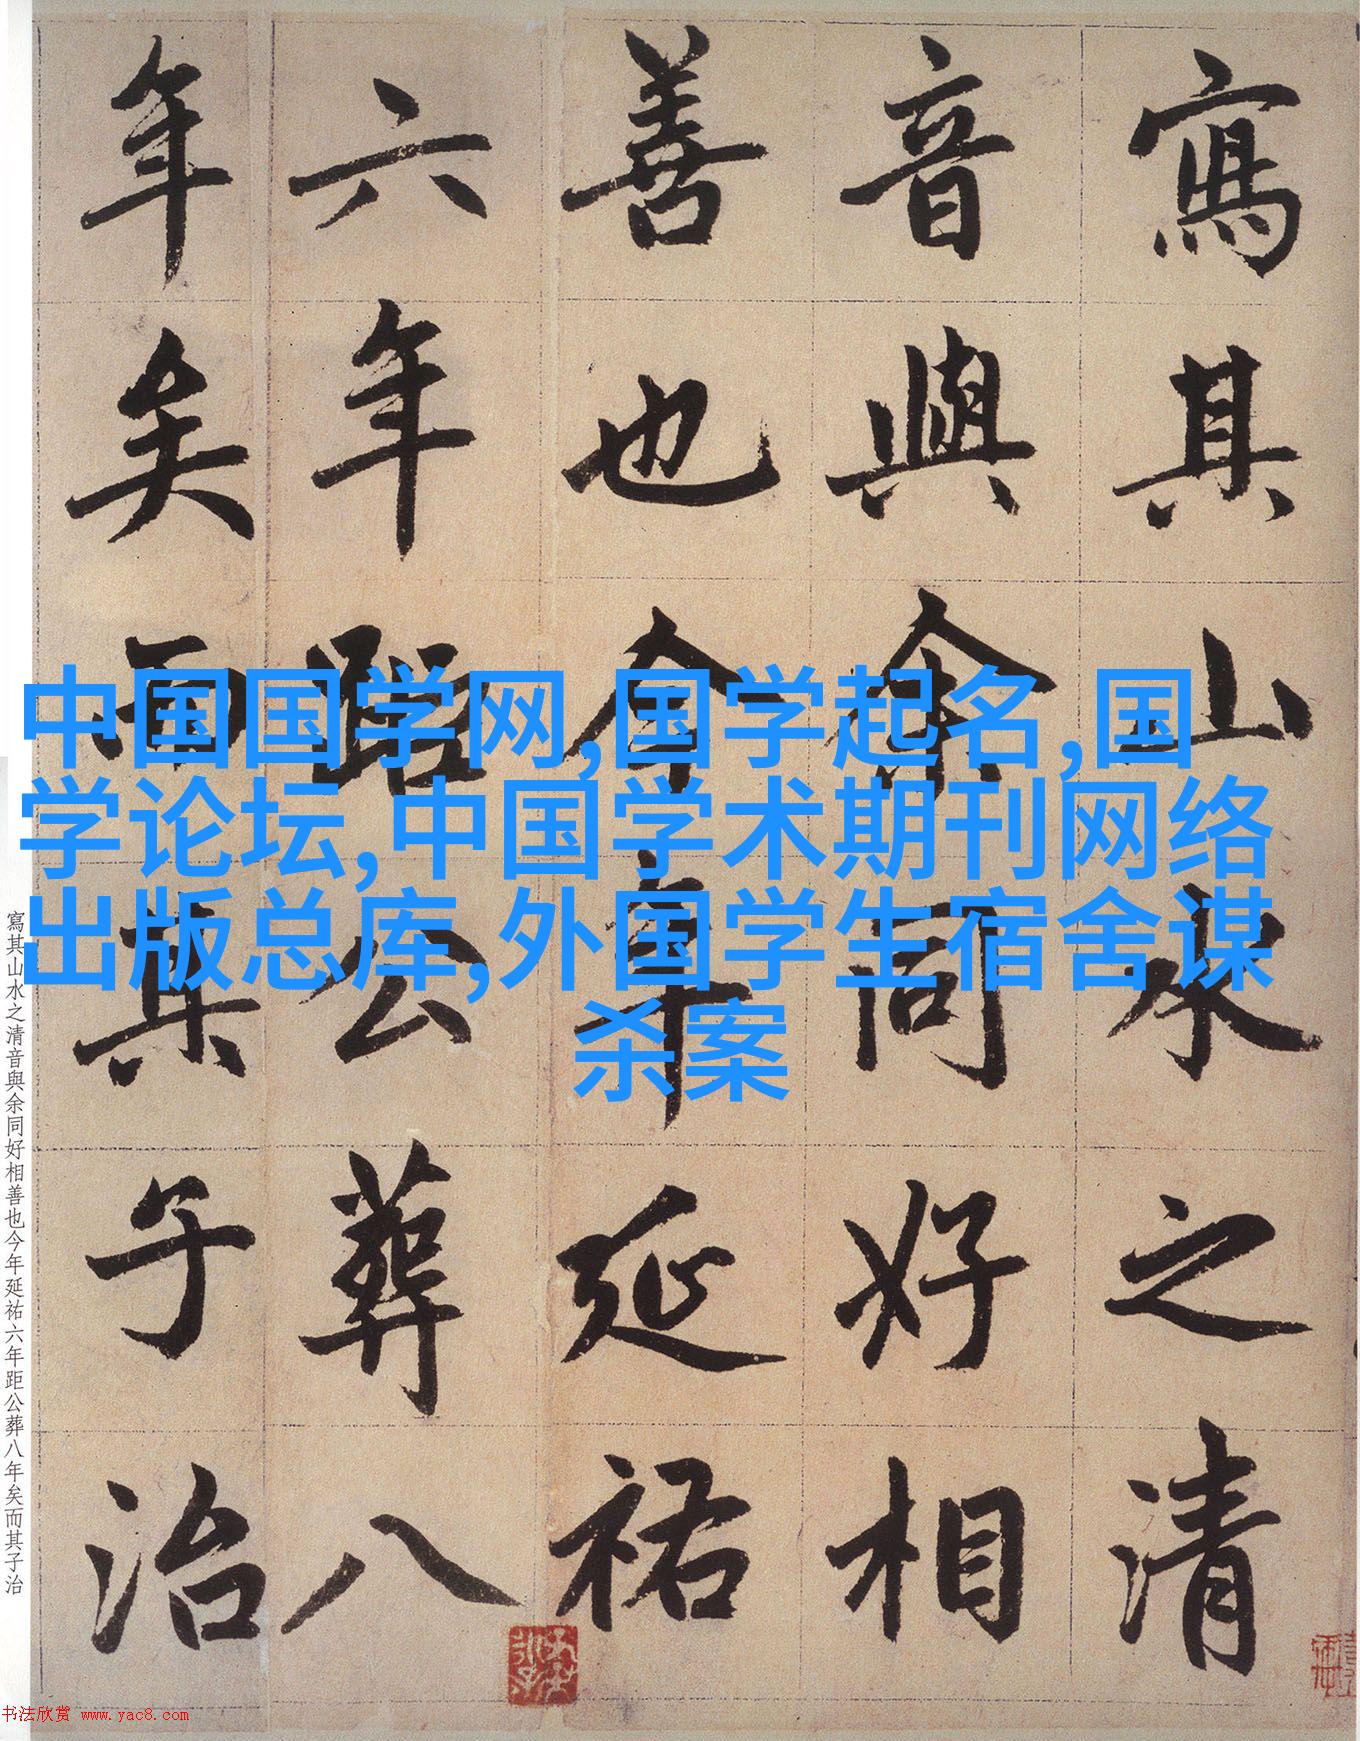 寫其山水之清
音與余同好相
善也今年延祐
六年距公葬八
年矣而其子治
中国国学网,国学起名,国
学论坛,中国学术期刊网络
出版总库,外国学生宿舍谋
杀案
寫其山水之清音與余同好相善也今年延祐六年距公葬八年矣而其子治
书法欣赏 www.yac8.com